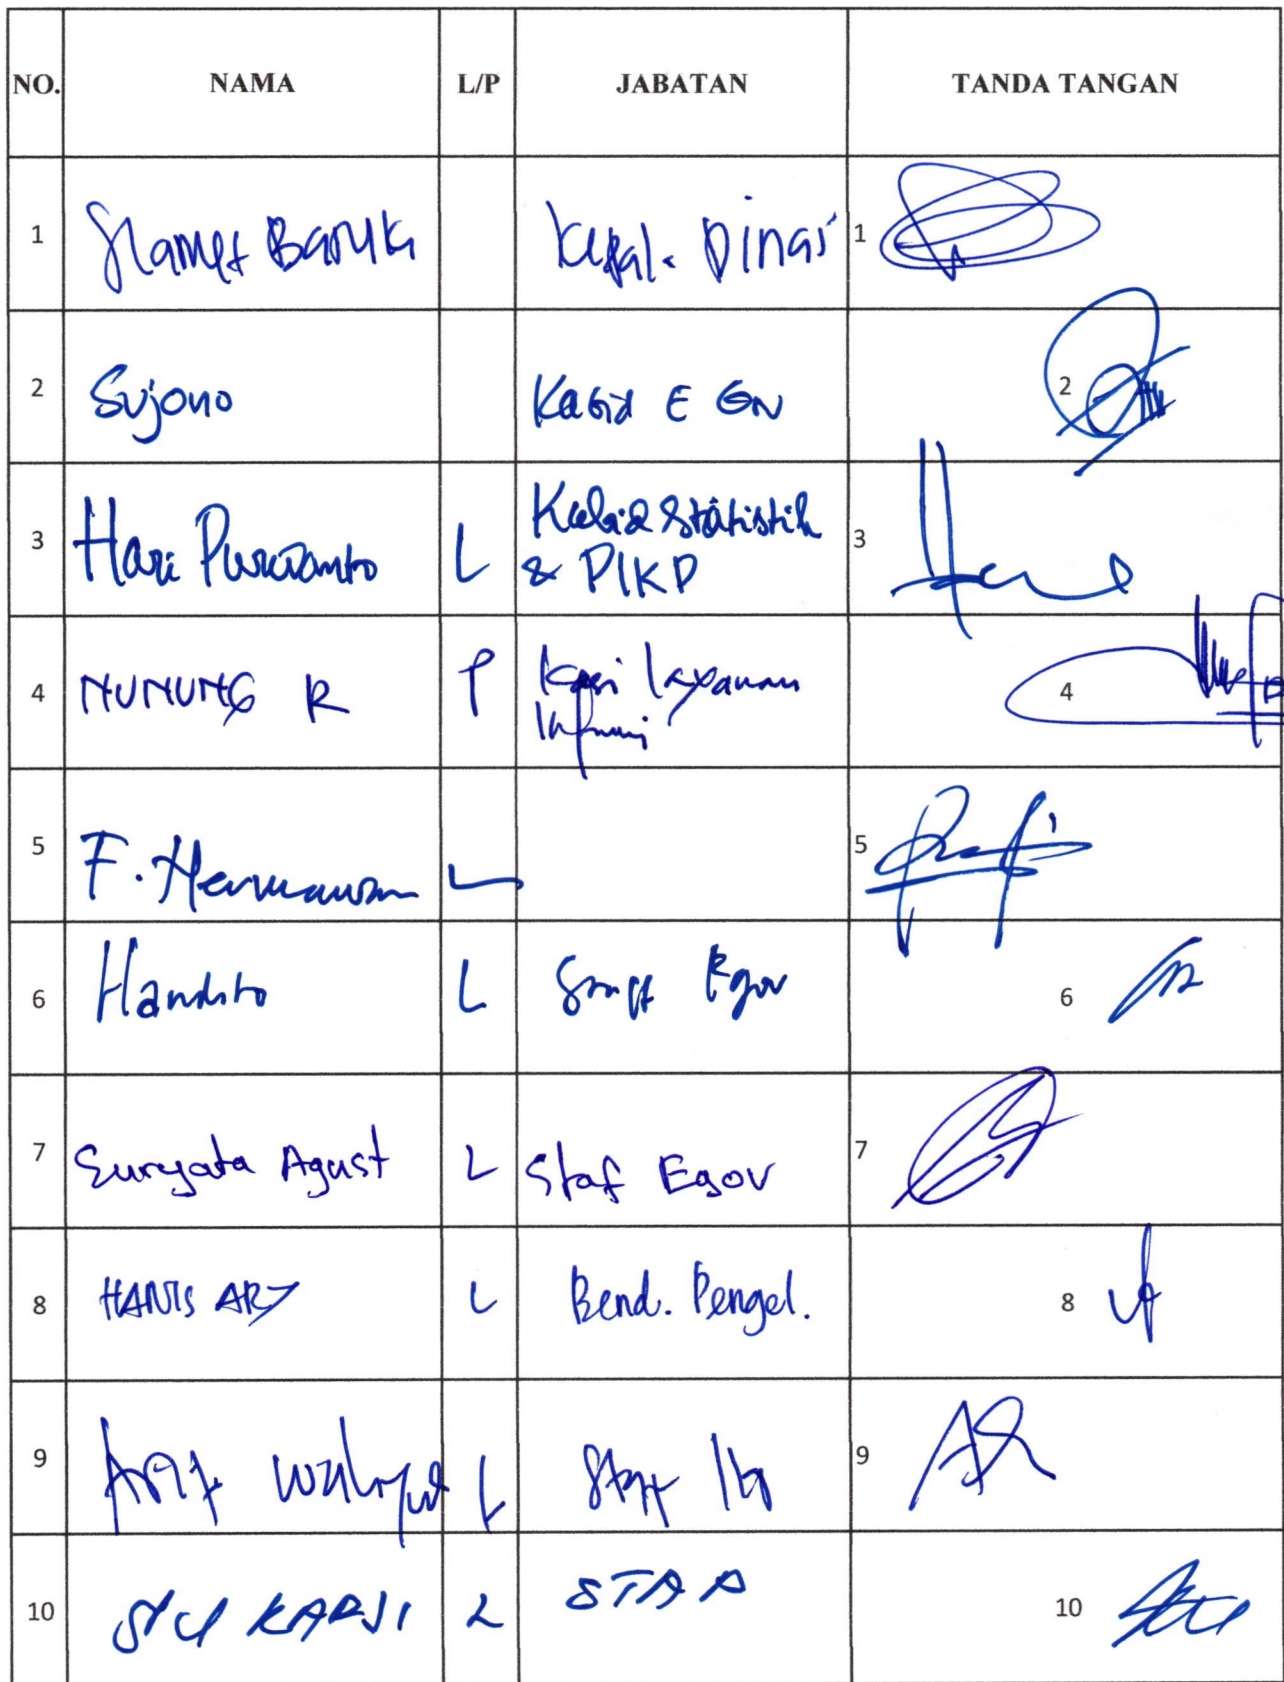 NO. NAMA L/P JABATAN TANDA TANGAN
1 Slamet Kepala Dinas 1
2 Sujono Kabid E Gov 2
3 Hari Purwanto L Kabid Statistik
& PIKP 3
4 NUNUNG R P Kasi Layanan
Informasi 4
5 F. Hermawan L 5
6 Handito L Staff Egov 6
7 Suryata Agust L Staf Egov 7
8 HANIS ARY L Bend. Pengel. 8
9 Arif L Staff 9
10 L STAF 10